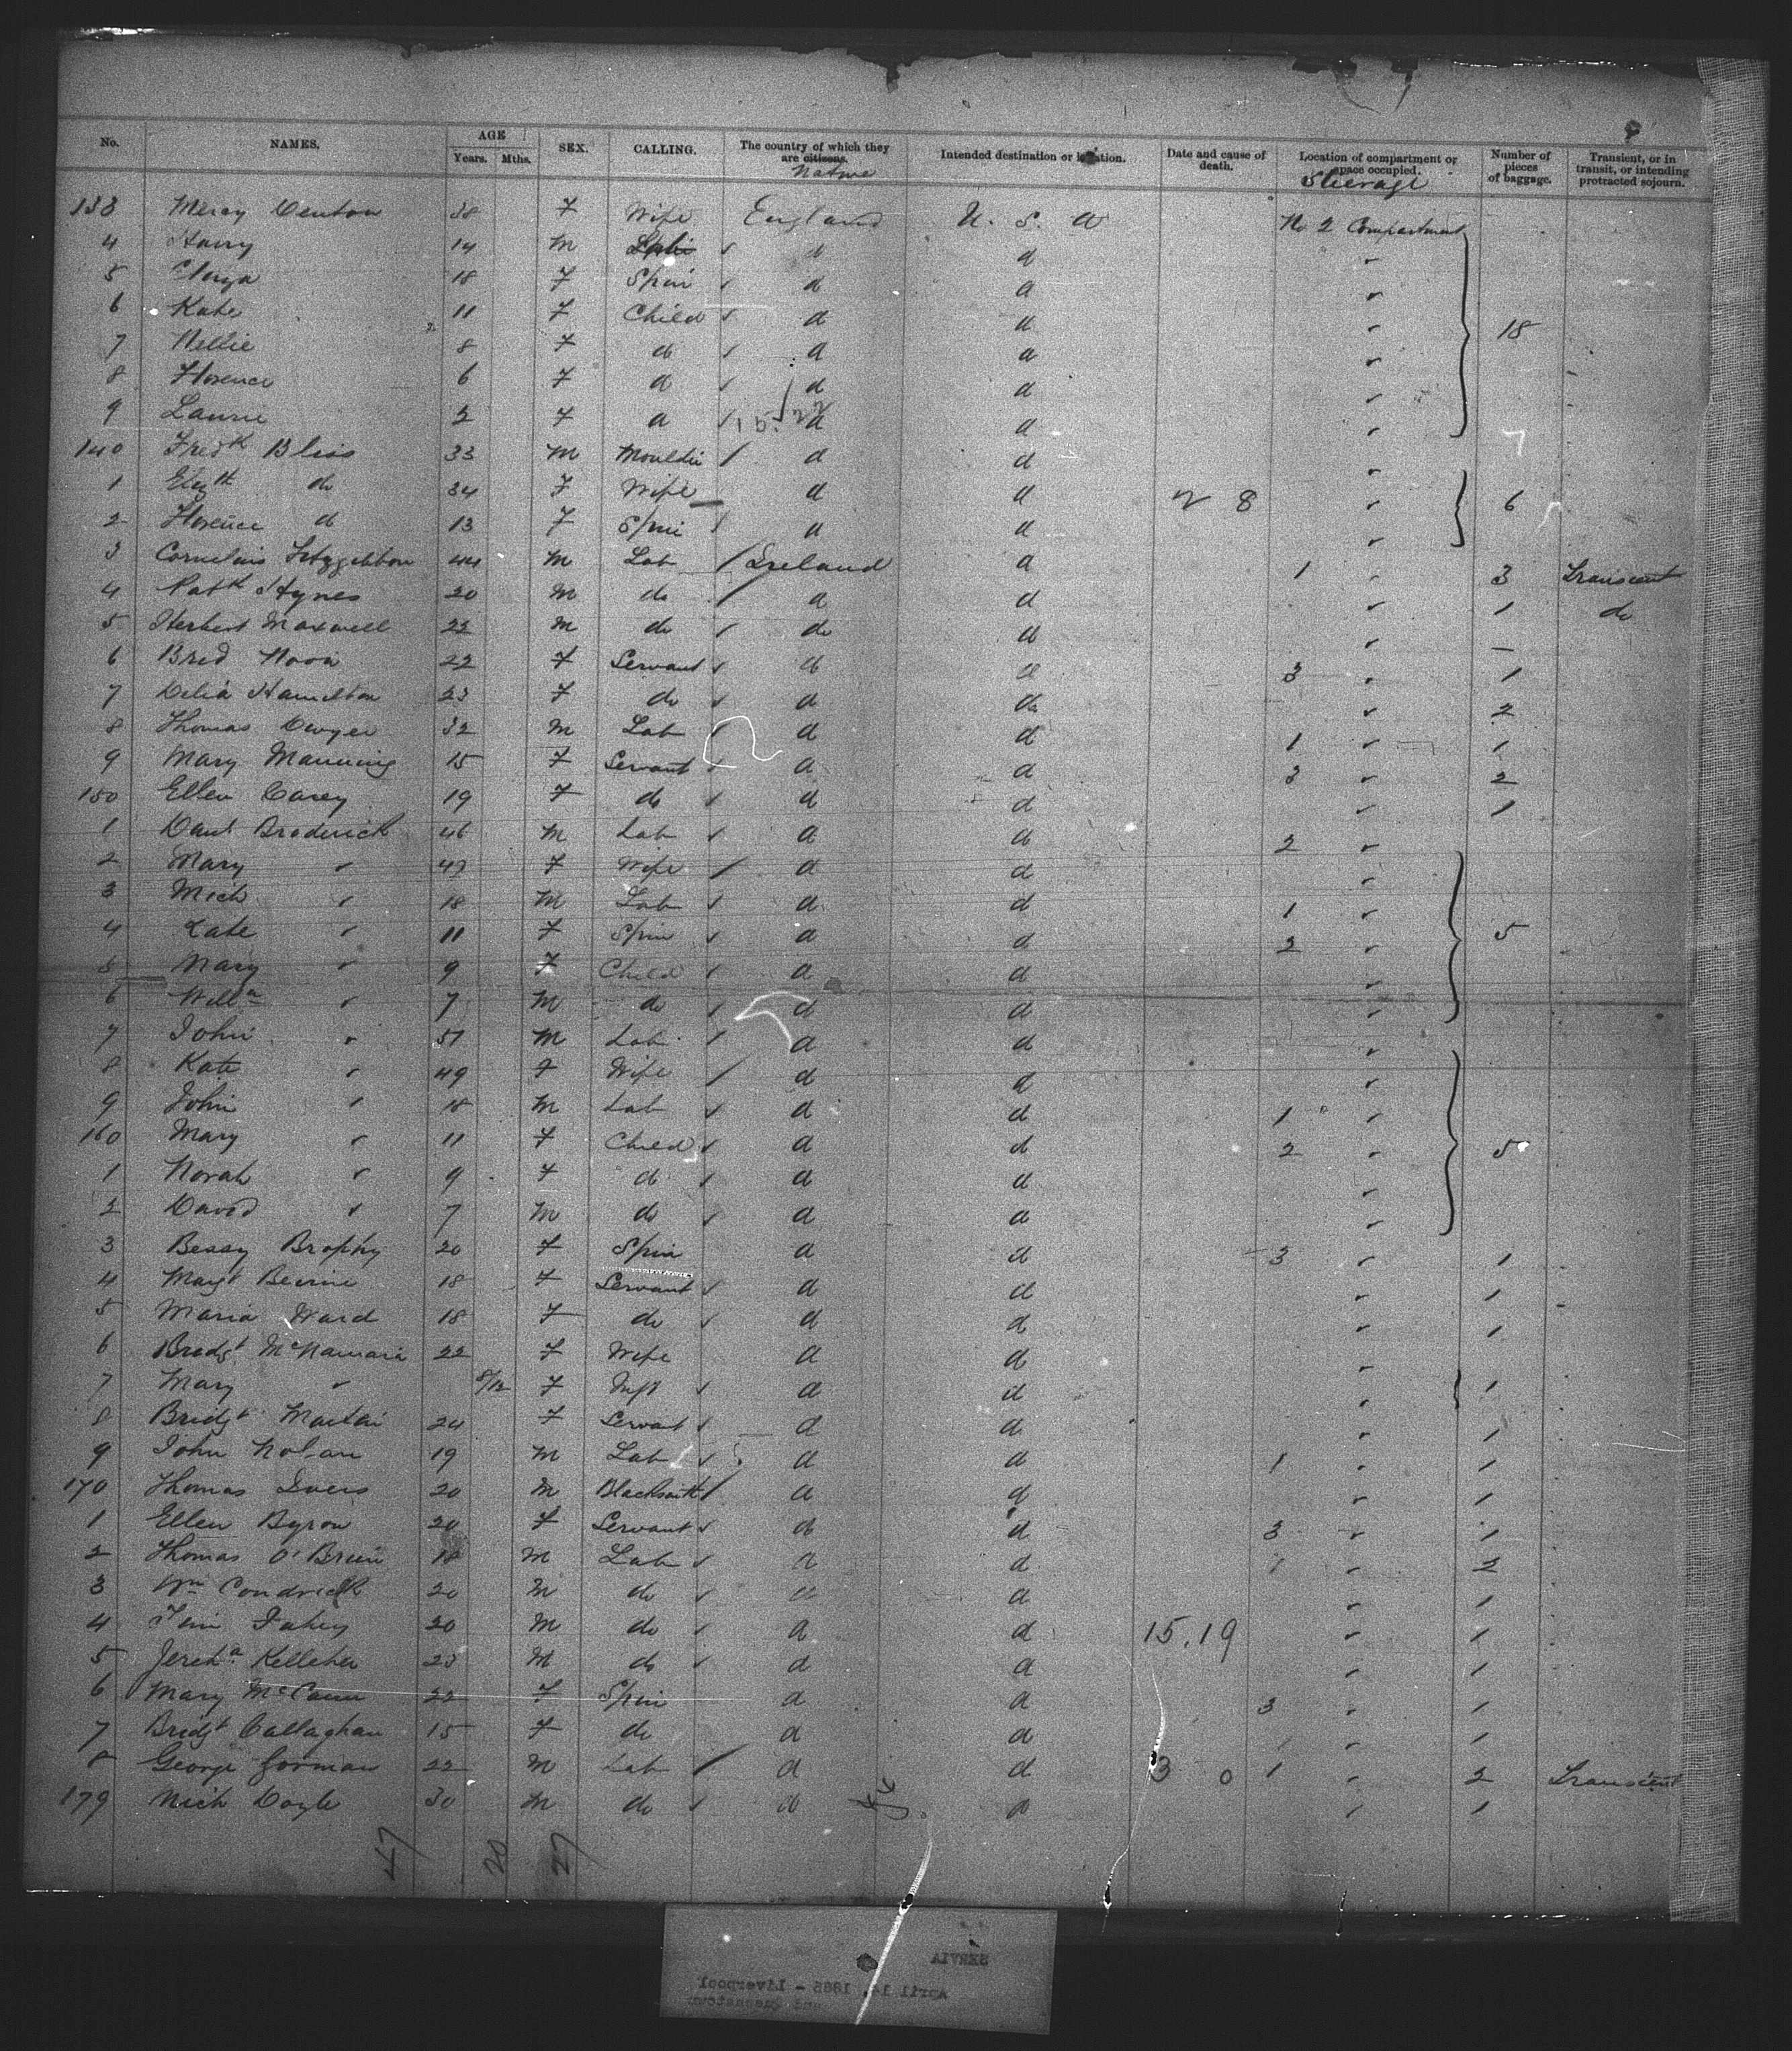 No. NAMES. AGE Years. Mths. SEX. CALLING. The country of which they are citizens. Native Intended destination or location. Date and cause of death. Location of compartment or space occupied. Steerage Number of pieces of baggage. Transient, or in transit, or intending protracted sojourn.
133 Mercy Denton 38 F Wife England U. S. A No 2 Compartment
4 Harry 14 M d d
5 18 F Spin d d
6 Kate 11 F Child d d 18
7 Nellie 8 F do d d
8 Florence 6 F d d d
9 Laurie 2 F d d d
140 Fredk Bliss 33 M Moulder d d
1 Elizth do 34 F Wife d d 2 8 6
2 Florence do 13 F Spin d d
3 Cornelius Fitzgibbon 44 M Lab Ireland d 1 3 Transient
4 Patk Hynes 20 M do d d 1 do
5 Herbert Maxwell 22 M do do d —
6 Brid Noon 22 F Servant d d 3 1
7 Delia Hamilton 23 F do d do 2
8 Thomas Dwyer 32 M Lab d d 1 1
9 Mary Manning 15 F Servant d d 3 2
150 Ellen Carey 19 F do d d 1
1 Danl Broderick 46 M Lab d d 2
2 Mary " F Wife d d
3 Mich " 18 M Lab d d 1
4 Kate " 11 F Spin d d 2 5
5 Mary " 9 F Child d d
6 Willm " 7 M do d d
7 John " 51 M Lab d d
8 Kate " 49 F Wife d d
9 John " 18 M Lab d d 1
160 Mary " 11 F Child d d 2 5
1 Norah " 9 F do d d
2 David " 7 M do d d
3 Bessy Brophy 20 F Spin d d 3 1
4 Margt 18 F Servant d d 1
5 Maria Ward 18 F do d d 1
6 Bridgt McNamara 22 F Wife d d
7 Mary " 8/12 F Inft d d 1
8 Bridgt Martin 24 F Servant d d 1
9 John Nolan 19 M Lab d d 1 1
170 Thomas Ivers 20 M Blacksmith d d 1
1 Ellen Byron 20 F Servant d d 3 1
2 Thomas O'Brien 18 M Lab d d 1 2
3 Wm Condrick 20 M do d d 1
4 Tim Fahey 20 M do d d 15.19 1
5 Kelleher 23 M do d d 1
6 Mary McCann 22 F Spin d d 3 1
7 Bridgt Callaghan 15 F do d d 1
8 George Gorman 22 M Lab d d 3 0 1 2 Transient
179 Mich Doyle 30 M do do d 1
47 20 27
SERVIA
April 14, 1885 - Liverpool
and Queenstown